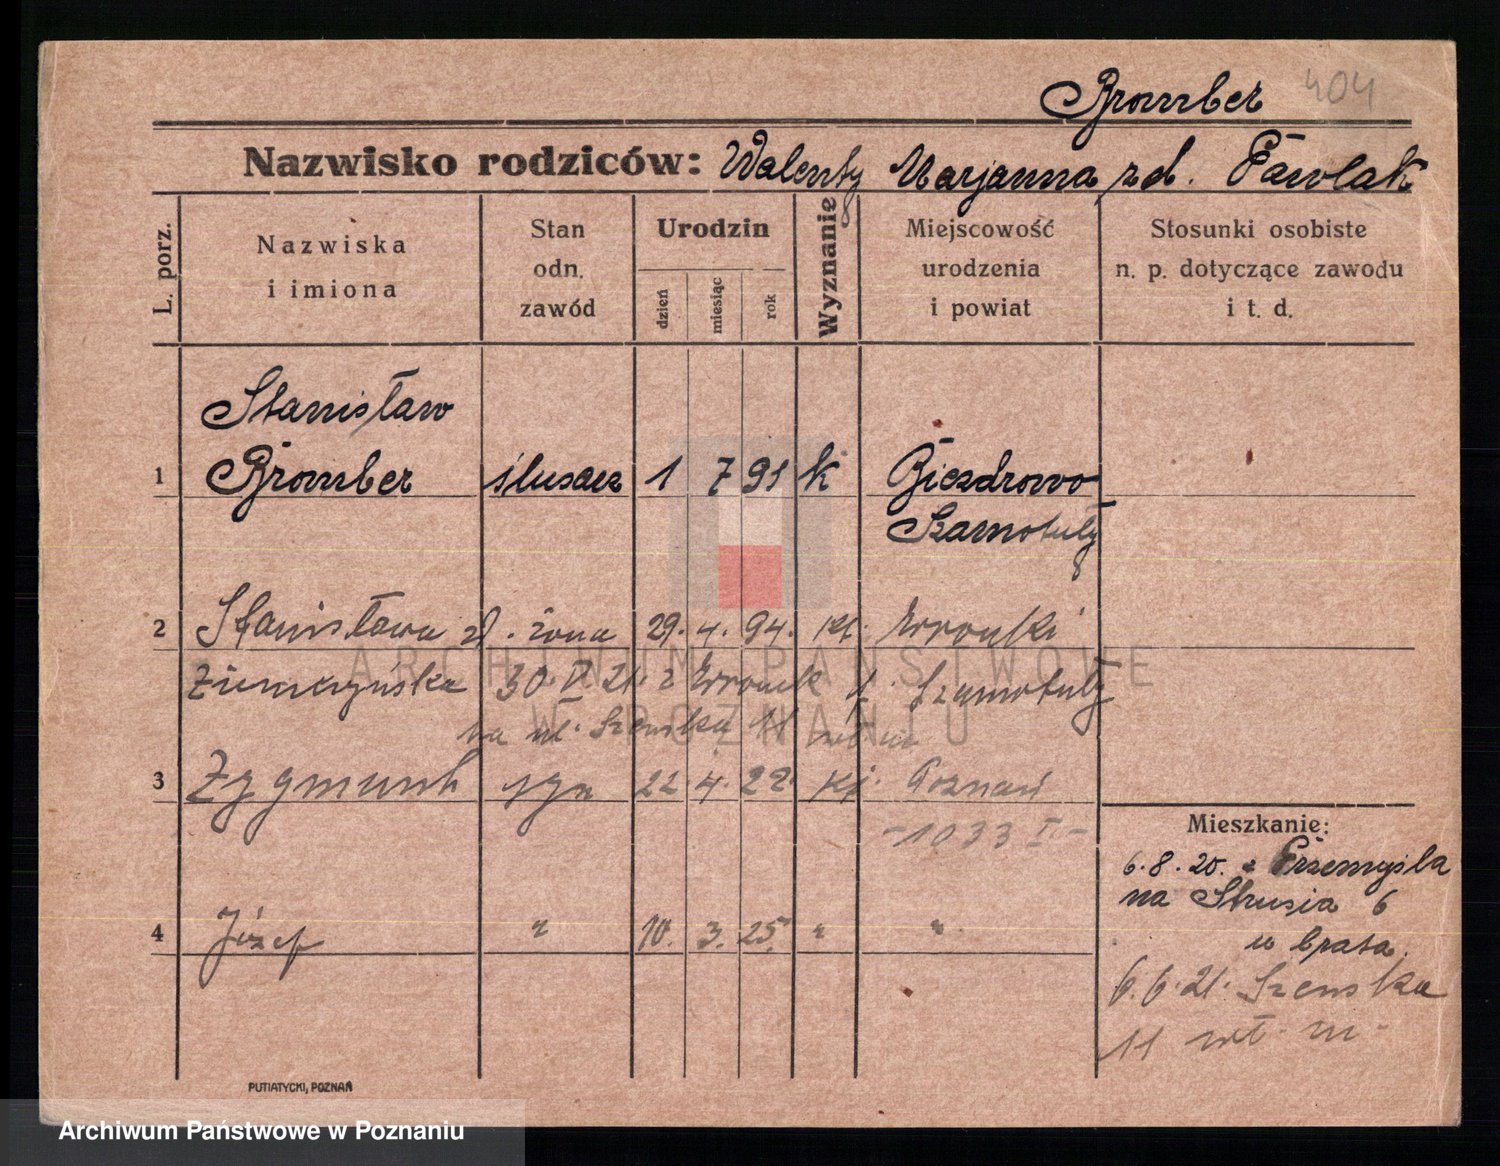 Bromber 404
Nazwisko rodziców: Walenty Marjanna zd. Pawlak
L. porz.
Nazwiska
i imiona
Stan
odn.
zawód
Urodzin
dzień
miesiąc
rok
Wyznanie
Miejscowość
urodzenia
i powiat
Stosunki osobiste
n. p. dotyczące zawodu
i t. d.
Stanisław
1 Bromber ślusarz 1 7 91 k Biezdrowo
Szamotuły
2 Stanisława żona 29. 4. 94. kt. Wronki
30.V.21. z Wronk Szamotuły
na ul. 11
3 Zygmunt syn 22. 4. 22. kt. Poznań
-1033 I.-
Mieszkanie:
6.8.20. z Przemyśla
na Strusia 6
4 Józef " 10. 3. 25. " "
u brata.
6.6.21.
11 wł. m.
PUTIATYCKI, POZNAŃ
ARCHIWUM PAŃSTWOWE
W POZNANIU
Archiwum Państwowe w Poznaniu